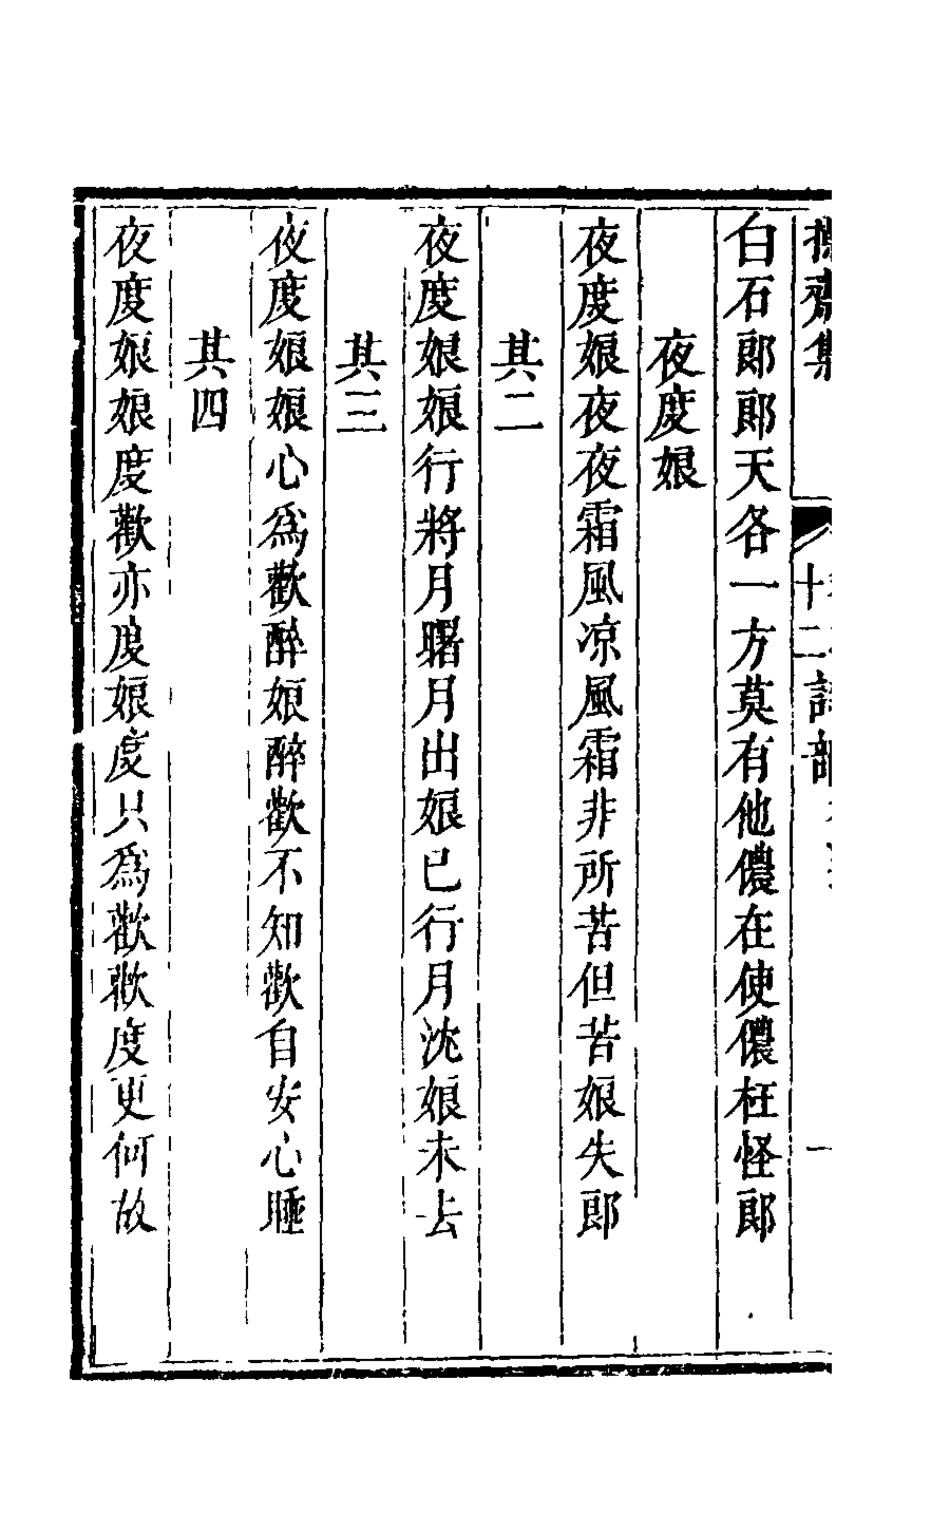 齋集
十二詩部
一
白石郎郎天各一方莫有他儂在使儂枉怪郎
夜度娘
夜度娘夜夜霜風凉風霜非所苦但苦娘失郎
其二
夜度娘娘行將月曙月出娘已行月沈娘未去
其三
夜度娘娘心爲歡醉娘醉歡不知歡自安心睡
其四
夜度娘娘度歡亦度娘度只爲歡歡度更何故